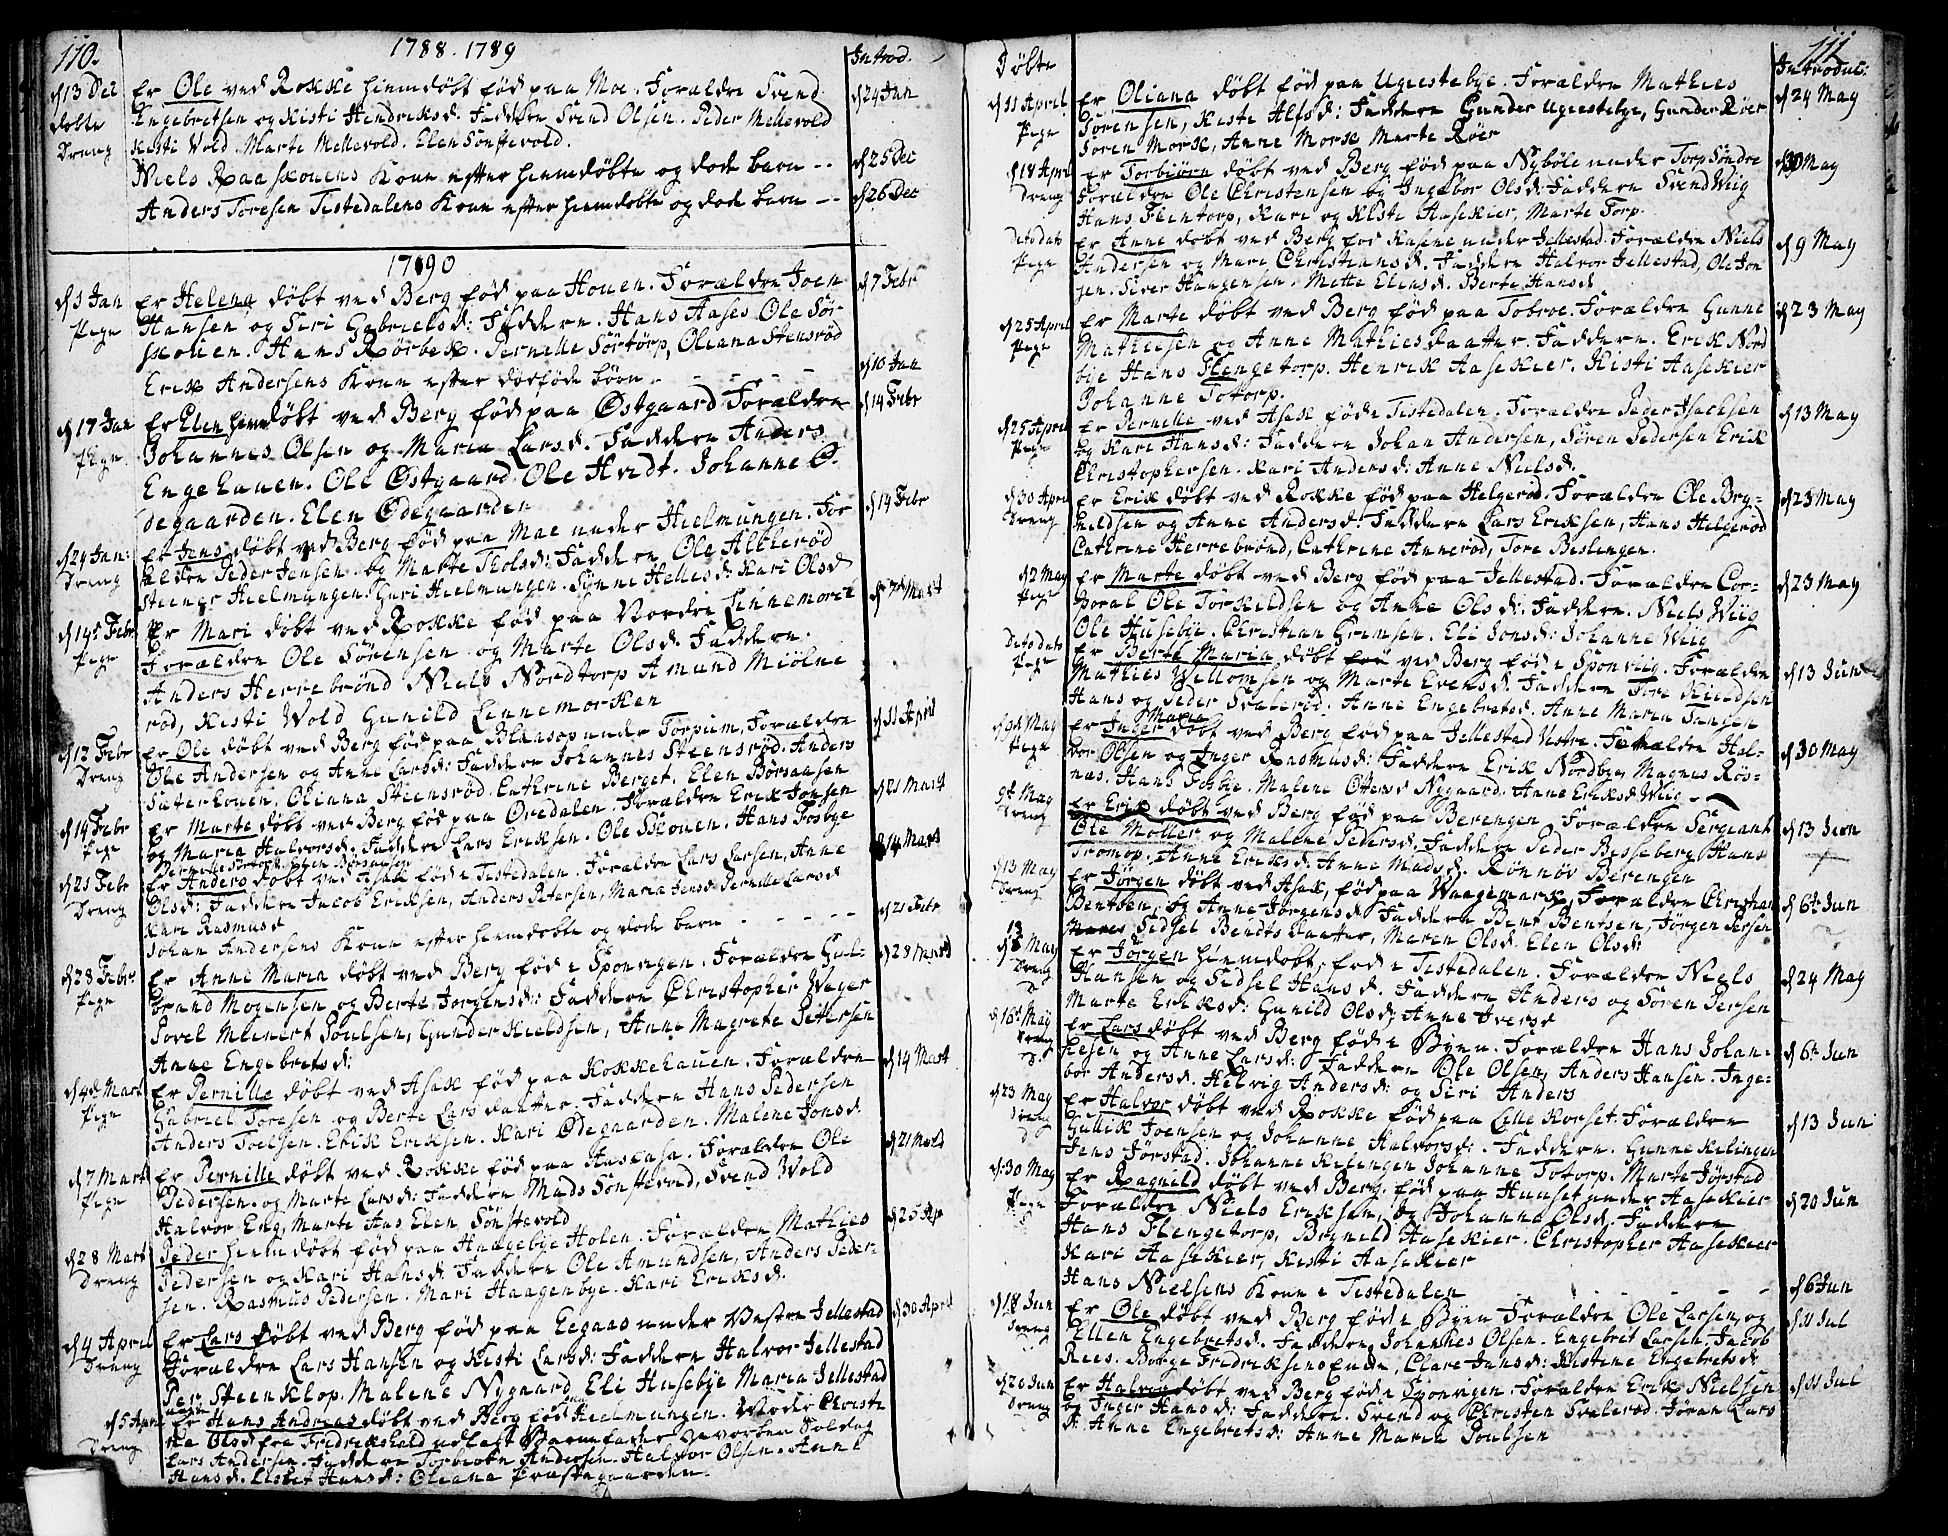 110.
1788. 1789
Introd.
d 13 Dec
døbte
Dreng
Er Ole ved Rokke hiemdøbt fød paa Moe. Forældre Svend
Engebretsen og Kisti Hendriksd. Faddere Svend Olsen. Peder Mellevold
Kisti Vold. Marte Mellevold. Elen Sønstevold.
d 24 Jan
Niels Raaskouens Kone efter hiemdøbte og døde barn --
d 25 Dec
Anders Toresen Tistedalens Kone efter hiemdøbte og døde barn --
d 26 Dec
1790
d 3 Jan
Pige
Er Helena døbt ved Berg fød paa Houen. Forældre Joen
Hansen og Siri Gabrielsd: Faddere. Hans Aases Ole Sør
skouen. Hans Rørbek. Pernille Sörtorp, Oliana Stensrød
d 7 Febr
Erik Andersens Kone efter dødføde börn - - - -
d 10 Jan
d 17 Jan
Pige
Er Elen hiemdøbt ved Berg fød paa Østgaard Forældre
Johannes Olsen og Maria Larsd. Faddere Anders
Engehauen. Ole Østgaard. Ole Hvidt. Johanne Ø-
degaarden. Elen Ødegaarden
d 14 Febr
d 24 Jan:
Dreng
Er Jens døbt ved Berg fød paa Moe under Hielmungen. For
ældre Peder Jensen og Marte Tholsd: Faddere Ole Ablerød
Steener Hielmungen. Guri Hielmungen. Synne Hellesd: Kari Olsd
d 14 Febr
d 14t Febr
Pige
Er Mari døbt ved Rokke fød paa Nordre Linnemork
Forældre Ole Sørensen og Marte Olsd. Faddere.
Anders Herrebrønd Niels Nordtorp Amund Miölne
rød, Kisti Vold Gunild Linnemorken
d 7de Mart
d 12 Febr
Dreng
Er Ole døbt ved Berg fød paa Blaasop under Torpum. Forældre
Ole Andersen og Anne Larsd: Faddere Johannes Steensrød. Anders
Säterhouen. Oliana Steensrød. Cathrine Berget. Elen Börsaasen
d 11 April
d 14 Febr
Pige
Er Marte døbt ved Berg fød paa Ovedalen. Forældre Erik Jonsen
og Maria Halvorsd. Faddere Lars Eriksen. Ole Skouen. Hans Fosbye
d 21 Mart
d 21 Febr
Dreng
Er Anders døbt ved Asak fød i Tistedalen. Forældre Lars Larsen, Anne
Olsd: Faddere Jacob Eriksen, Anders Petersen, Maria Jensd. Pernille Larsd
Kari Rasmusd
d 14 Mart
Johan Andersens Kone efter hiemdøbte og døde barn - - - - -
d 21 Febr
d 28 Febr:
Pige
Er Anne Maria døbt ved Berg fød i Sponvigen. Forældre Gul-
brand Mogensen og Berte Jørgensd:: Faddere Christopher Weger
Povel Meinert Poulsen, Gunder Kieldsen, Anne Magrete Petersen
Anne Engebretsd:
d 28 Mart
d 4de Mart
Pige
Er Pernille døbt ved Asak fød paa Kokkehauen. Forældre
Gabriel Toresen og Berte Larsdaatter. Faddere Hans Pedersen
Anders Toelsen. Erik Eriksen. Kari Ødegaarden. Malene Jonsd
d 14 Mart
d 7 Mart
Pige
Er Pernille døbt ved Rokke fød paa Aasaasa. Forældre Ole
Pedersen og Marte Larsd: Faddere Mads Sönstevold, Svend Vold
Halvor Eng, Marte Aas Elen Sönstevold
d 21 Mart
d 28 Mart
Dreng
Peder hiemdøbt fød paa Haagebye Holen. Forældre Mathies
Pedersen og Kari Hansd: Faddere Ole Amundsen, Anders Peder-
sen. Rasmus Pedersen. Mari Haagenbye. Kari Eriksd.
d 25 Ap
d 4 April
Dreng
Er Lars døbt ved Berg fød paa Eegaas under Vestre Jellestad
Forældre Lars Hansen og Kisti Larsd: Faddere Halvor Jellestad
Per Steenklop. Malene Nygaard. Eli Husebye Maria Jellestad
d 30 April
d 5 April
Dreng
Er Hans Andreas døbt ved Berg fød Hielmungen. Moder Christi
ne Olsd fra Fridrikshald udlagt Barnefader Hvervben Soldag
Lars Andersen. Faddere Torbiørn Andersen. Halvor Olsen. Anne
Hansd. Lisbet Hansd: Oliana Præstegaarden.
111
Døbte
Introduc:
d 11 April
Pige
Er Oliana døbt fød paa Ugiestebye. Forældre Mathies
Sørensen, Kisti Alfsd: Faddere Gunder Ugiestebye, Gunder Röer
Soren Mork, Anne Mork Marte Röer
d 24 May
d 18 April
Dreng
Er Torbiørn døbt ved Berg fød paa Nyböle under Torp Söndre
Forældre Ole Christensen og Ingebor Olsd: Faddere Svend Wiig
Hans Flentorp, Kari og Kisti Aasekier, Marte Torp.
d 30 May
Dito dato
Pige
Er Anne døbt ved Berg fød Kasene under Jellestad. Forældre Niels
Andersen og Mari Christiansd. Faddere Halvor Jellestad, Ole Jon
sen. Siver Haugensen. Mette Elensd. Berte Hansd.
d 9 May
d 25 April
Pige
Er Marte døbt ved Berg fød paa Tobroe. Forældre Gunne
Mathiesen og Anne Mathiesdaatter. Faddere. Erik Nord
bye Hans Flengetorp. Henrik Aasekier. Kisti Aasekier
Johanne Totorp.
d 23 May
d 25 April
Pige
Er Pernille ved Asak fød i Tistedalen. Forældre Peder Isachsen
og Kari Hansd: Faddere Johan Andersen, Sören Pedersen Erik
Christophersen. Kari Andersd: Anne Nielsd.
d 13 May
d 30 April
Dreng
Er Erik døbt ved Rokke fød paa Helgerød. Forældre Ole Bry-
nildsen og Anne Andersd: Faddere Lars Eriksen, Hans Helgerød
Cathrine Herrebrønd, Cathrine Annerød, Tore Bislingen.
d 23 May
d 2 May
Pige
Er Marte døbt ved Berg fød paa Jellestad. Forældre Cor-
poral Ole Törkildsen og Anne Olsd: Faddere. Niels Wiig
Ole Husebye. Christian Grimsen. Eli Jonsd: Johanne Wiig
d 23 May
Dito dato
Pige
Er Berte Maria døbt ved Berg fød i Sponviig. Forældre
Mathies Willomsen og Marte Evensd. Faddere Tore Kieldsen
Hans og Peder Svalerød. Anne Engebretsd. Anne Maria Tangen
d 13 Jun
d 9de May
Pige
Er Inger Maria døbt ved Berg fød paa Jellestad Ustre. Forældre Hal-
vor Olsen og Inger Rasmusd: Faddere Erik Nordbye, Magnus Røs-
næs. Hans Fosbye. Malene Ottersd Nygaard. Anne Eriksd Wiig
d 30 May
9de May
Dreng
Er Erik døbt ved Berg fød paa Berengen. Forældre Sergeant
Ole Moller og Malene Pedersd. Faddere Peder Bisseberg Hans
Tromop. Anne Eriksd. Anne Madsd. Rønnov Berengen
d 13 Jun
d 13 May
Dreng
Er Jørgen døbt ved Asak, fød paa Vaagemark, Forældre Christian
Bentsen, og Anne Jørgensd. Faddere Bent Bentsen, Jørgen Persen
Sidsel Bendtsdaatter, Maren Olsd. Elen Olsd:
d 6te Jun
d 13 May
Dreng
Er Jørgen hiemdøbt, fød i Tistedalen. Forældre Niels
Hansen og Sidsel Hansd. Faddere Anders og Søren Persen
Marte Eriksd: Gunild Olsd; Anne Iversd
d 24 May
d 16t May
Dreng
Er Lars døbt ved Berg fød i Byen. Forældre Hans Johan-
nesen og Anne Larsd: Faddere Ole Olsen, Anders Hansen. Inge-
bor Andersd. Helvig Andersd: og Siri Anders
d 6te Jun
d 23 May
Dreng
Er Halvor døbt ved Rokke fød paa Lille Korset. Forældre
Gullik Joensen og Johanne Halvorsd: Faddere. Gunne Kilingen
Jens Jørstad. Johanne Kilengen Johanne Totorp. Marte Jørstad
d 13 Jun
d: 30 May
Pige
Er Ragnild døbt ved Berg. fød paa Huuset under Aasekier
Forældre Niels Eriksen, og Johanne Olsd. Faddere
Hans Flengetorp, Brynild Aasekier. Christopher Aasekier
Kari Aasekier, Kisti Aasekier
d 20 Jun
Hans Nielsens Kone i Tistedalen - - - - -
d 6 Jun
d 18 Jun
Dreng
Er Ole døbt ved Berg fød i Byen Forældre Ole Larsen og
Ellen Engebretsd. Faddere Johannes Olsen. Engebret Larsen. Jacob
Rees. Børge Fridriksens Enke, Clare Jansd: Kistine Engebretsd
d 11 Jul
d 20 Jun
Dreng
Er Halvor døbt ved Berg fød i Sponvigen. Forældre Erik Nielsen
og Inger Hansd: Faddere. Svend og Christen Svalerød. Jøran Lars
d. Anne Engebretsd: Anne Maria Poulsen
d 11 Jul